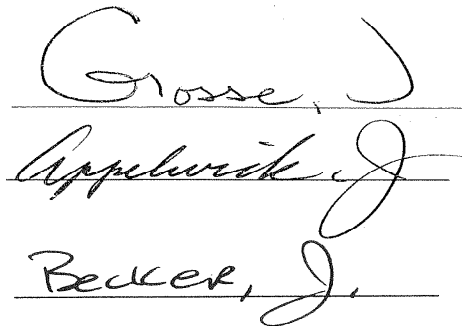 Grosse, J
Appelwick, J
Becker, J.